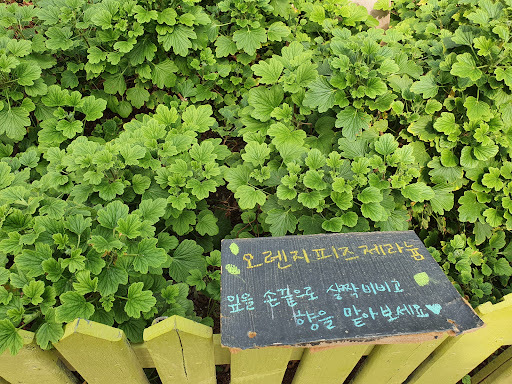 오렌지 피즈 제라늄
잎을 손끝으로 살짝 비비고
향을 맡아보세요